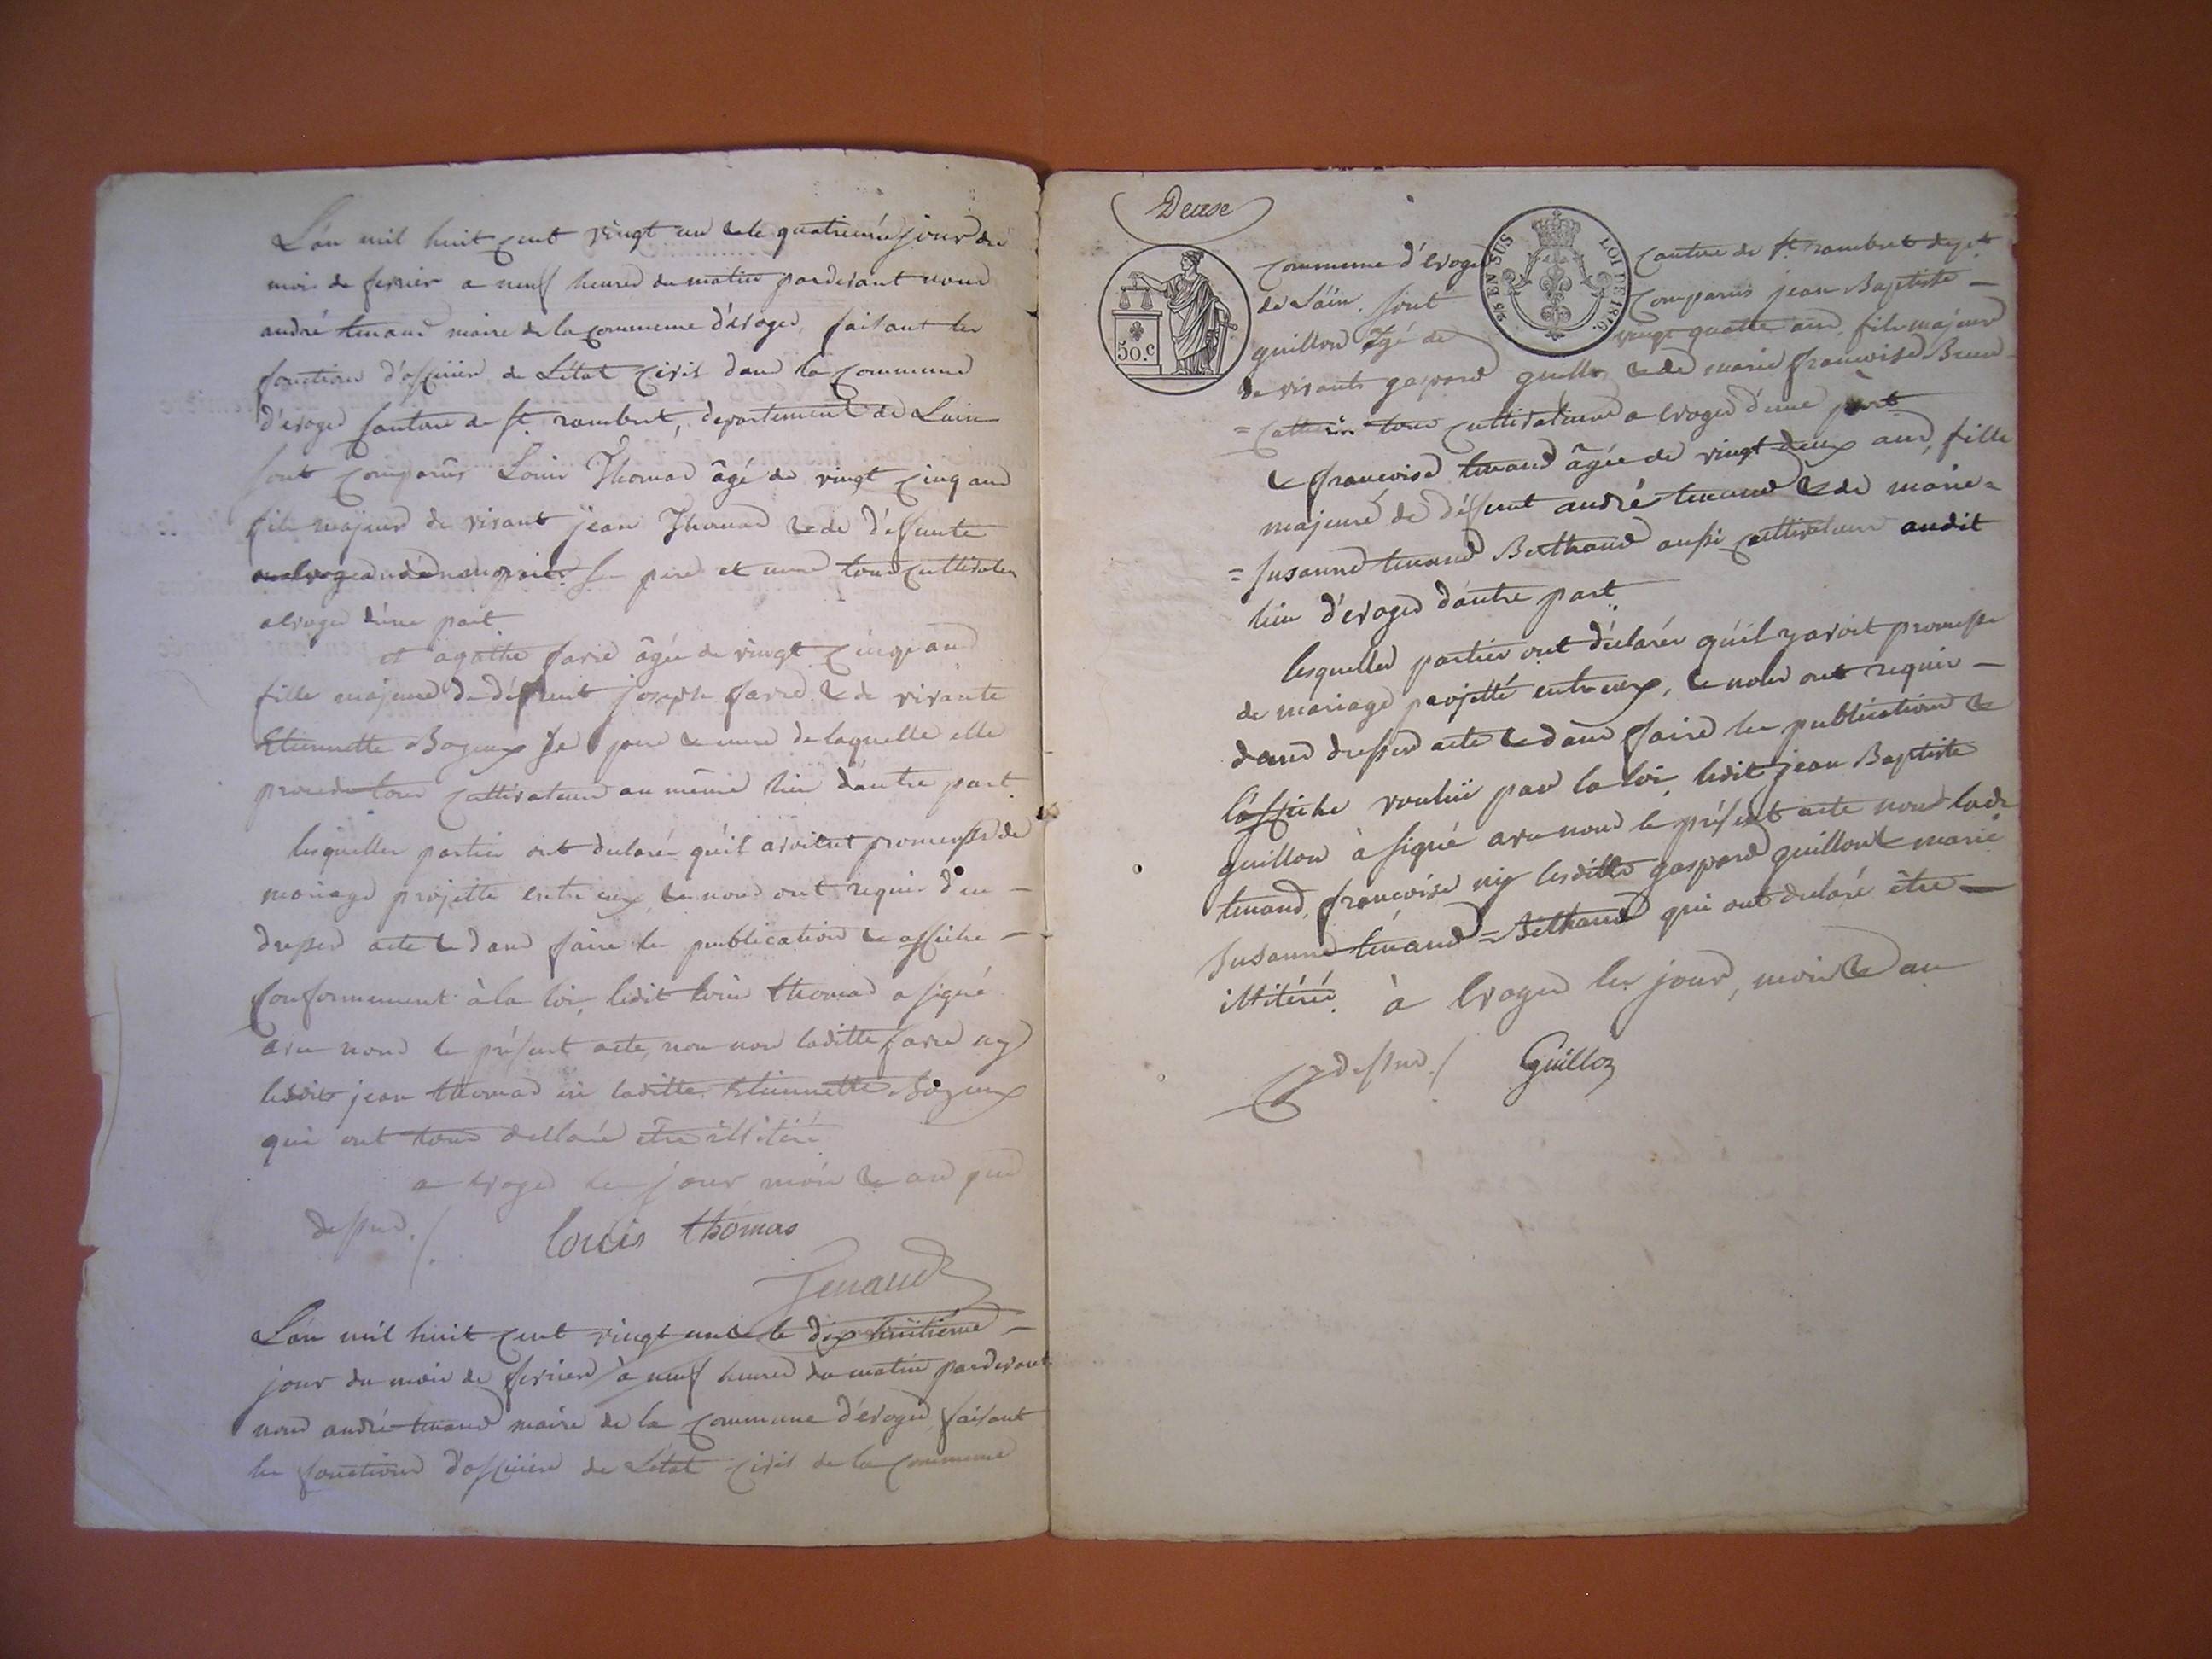 L'an mil huit cent vingt un & le quatriemé jour du
mois de fevrier a neuf heures du matin pardevant nous
andré tenand maire de la commune d'évoges, faisant les
fonctions d'officier de L'état Civil dans la Commune
d'évoges Canton de st. rambert, département de Lain
sont Comparûs Louis Thomas âgé de vingt Cinq ans
fils majeur de vivant jean Thomas & de déffunte
ses pere et mere tous cultivateur
a evoges d'une part
et agathe favre âgée de vingt Cinq ans
fille majeure de déffunt joseph favre & de vivante
Etiennette Bozeux Se pere & mere de laquelle elle
procede tous Cultivateurs au même lieu d'autre part
lesquelles parties ont declarér qu'il avoient promesse de
mariage projetté entr'eux, & nous ont requis d'en
dresser acte & dans faire les publications & affiche
Conformement à la loi, ledit louis thomas a signé
avec nous le présent acte, non laditte favre ny
ledit jean thomas ni laditte Etiennette Bozeux
qui ont tous declaré être illitéré
a evoges les jour mois & an que
dessus ./.
louis thomas
Tenand
L'an mil huit Cent vingt un & le dix huitiéme
jour du mois de fevrier à neuf heures du matin pardevant
nous andré tenand maire de la Commune d'évoges, faisant
les fonctions d'officier de L'état Civil de la Commune
Deuxe
50.c
EN SUS LOI DE 1816.
Commune d'évoges Canton de st. rambert dept.
de Lain. sont Comparus jean Baptiste
guillon âgé de vingt quatre ans, fils majeur
de vivants gaspard guillon & de marie françoise Brun
= Catherin tous Cultivateurs a evoges d'une part
& françoise tenand âgée de vingt deux ans, fille
majeure de déffunt andré tenand & de marie =
= susanne tenand Berthand aussi Cultivateurs audit
lieu d'évoges d'autre part
lesquelles parties ont déclarér qu'il y avoit promesse
de mariage projetté entr'eux, & nous ont requis
dans dresser acte & dans faire les publications &
l'affiche voulüe par la loi, ledit jean Baptiste
guillon à signé avec nous le présent acte non lade
tenand, françoise ny lesdittes gaspard guillon & marie
susanne tenand = Bethand qui ont declaré être
illitéré. à Evoges les jour, mois & an
que dessus ./.
Guillon